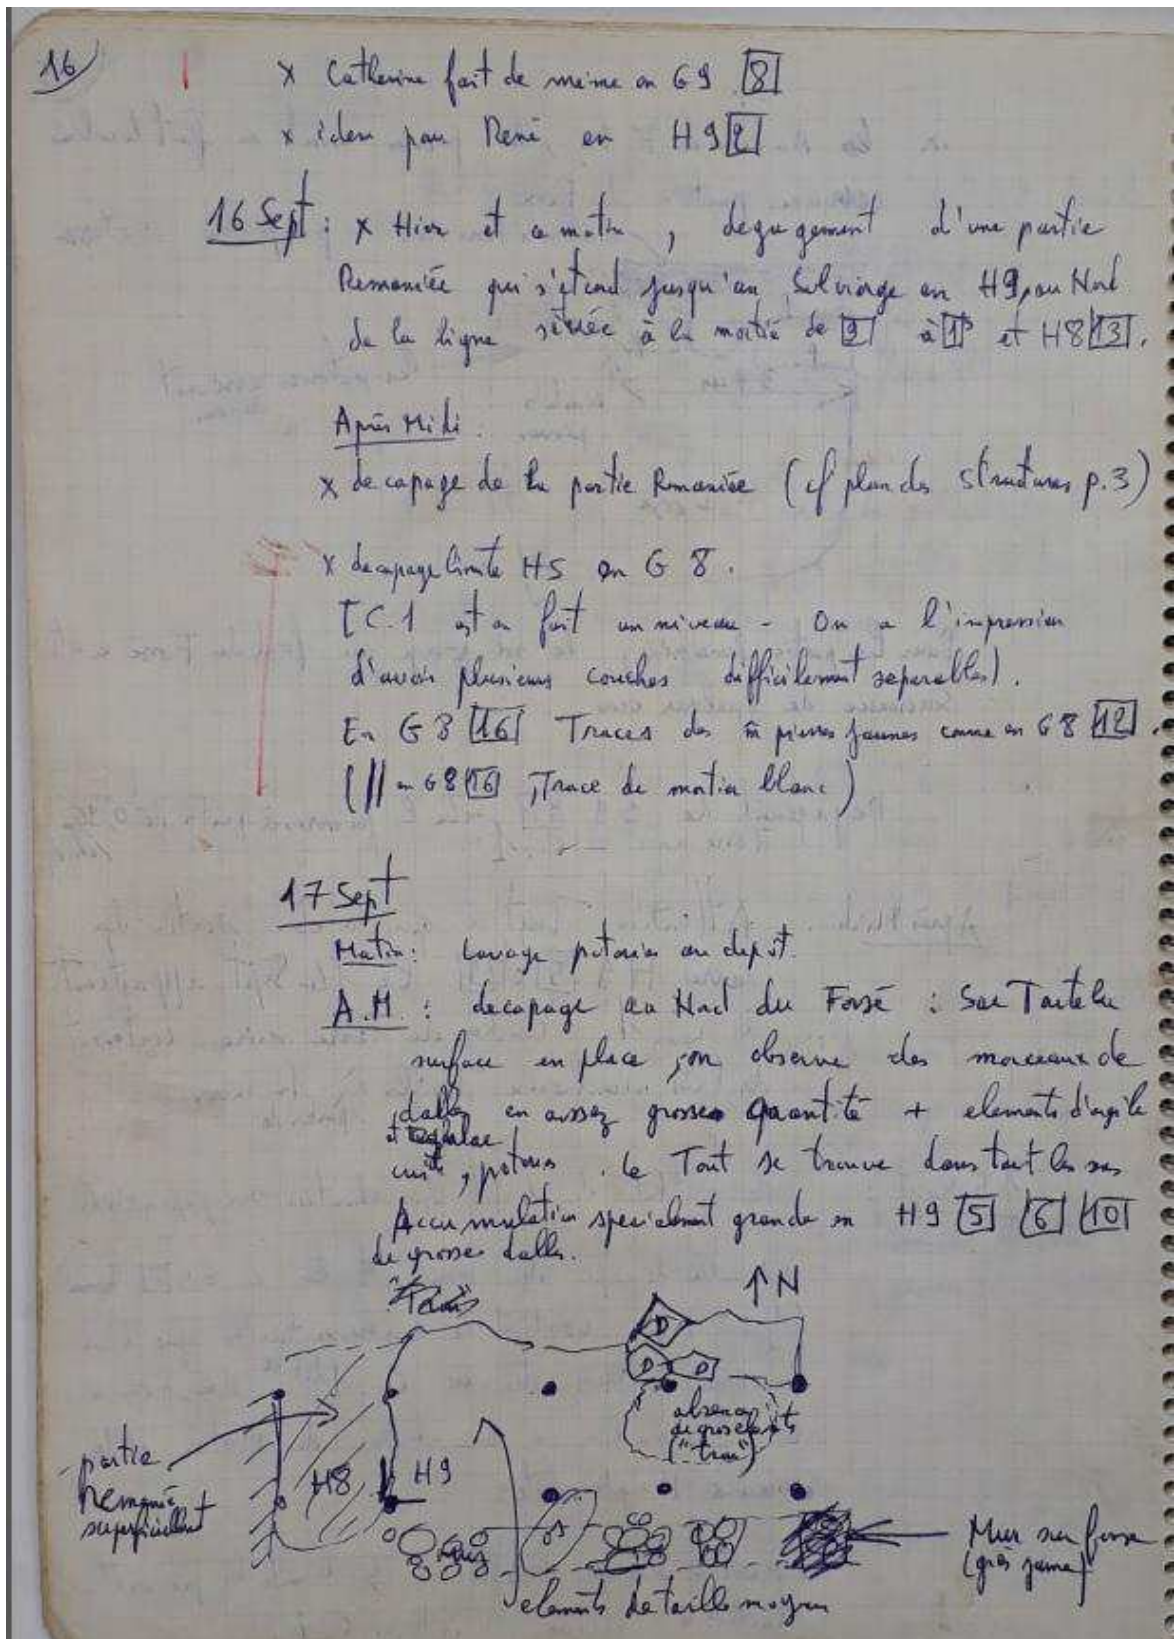 16
x Catherine fait de même en G9 [8]
x idem pour René en H9 [2]
16 Sept : x Hier et ce matin, degagement d'une partie
Remaniée qui s'étend jusqu'au Sol vierge en H9, au Nord
de la ligne située à la moitié de [2] à [1] et H8 [13].
Après Midi :
x decapage de la partie Remaniée (cf plan des Structures p.3)
x decapage limite HS en G 8.
[C.1 est en fait un niveau - On a l'impression
d'avoir plusieurs couches difficilement separables).
En G 8 [16] Traces des m̂ pierres jaunes comme en G8 [12].
(// en G8 [16], Trace de mortier blanc)
17 Sept
Matin : Lavage poteries au depôt.
A.M. : decapage au Nord du Fossé : Sur Toute la
surface en place, on observe des morceaux de
dalles en assez grosse quantité + elements d'argile
et
cuite, poteries. Le Tout se trouve dans tout les sens
Accumulation specialement grande en H9 [5] [6] [10]
de grosses dalles.
↑ N
D
D D
absence
de gros elements
("trou")
partie
Remaniée
superficiellement
H8 H9
Mur sur fosse
(grès jaune)
elements de taille moyenne